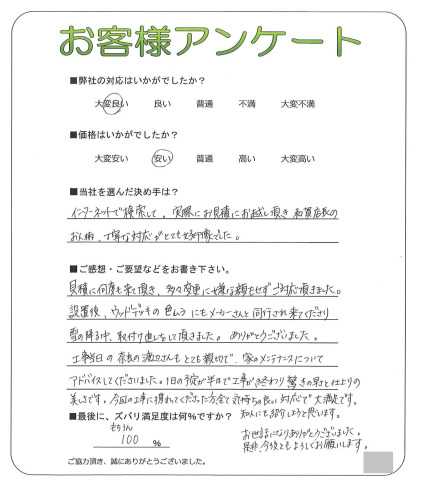 お客様アンケート
■弊社の対応はいかがでしたか？
大変良い 良い 普通 不満 大変不満
■価格はいかがでしたか？
大変安い 安い 普通 高い 大変高い
■当社を選んだ決め手は？
インターネットで検索して、実際にお見積にお越し頂き 和賀店長の
お人柄、丁寧な対応がとても好印象でした。
■ご感想・ご要望などをお書き下さい。
見積に何度も来て頂き、多々変更に嫌な顔もせずご対応頂きました。
設置後、ウッドデッキの色ムラにもメーカーさんと同行され来てくださり
雪の降る中、取付け直しをして頂きました。ありがとうございました。
工事当日の 渡辺さんもとても親切で、家のメンテナンスについて
アドバイスしてくださいました。1日の予定が半日で工事が終わり驚きの早さと仕上りの
美しさです。今回の工事に携わてくださった方全て気持ちの良い対応で大満足です。
知人にも紹介しようと思います。
■最後に、ズバリ満足度は何%ですか？
もちろん
100 %
お世話になりありがとうございました。
是非、今後ともよろしくお願い致します。
ご協力頂き、誠にありがとうございました。